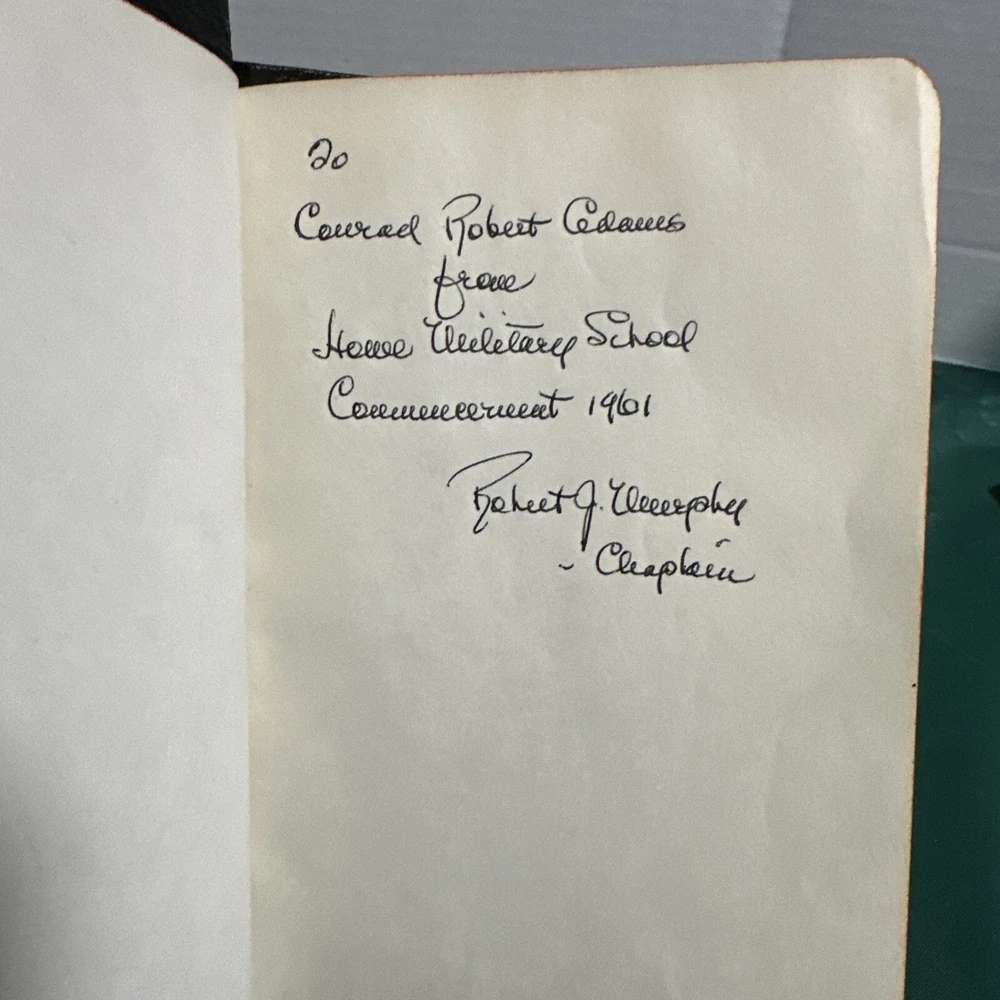 To
Conrad Robert Adams
from
Howe Military School
Commencement 1961
Robert J. Murphy
- Chaplain